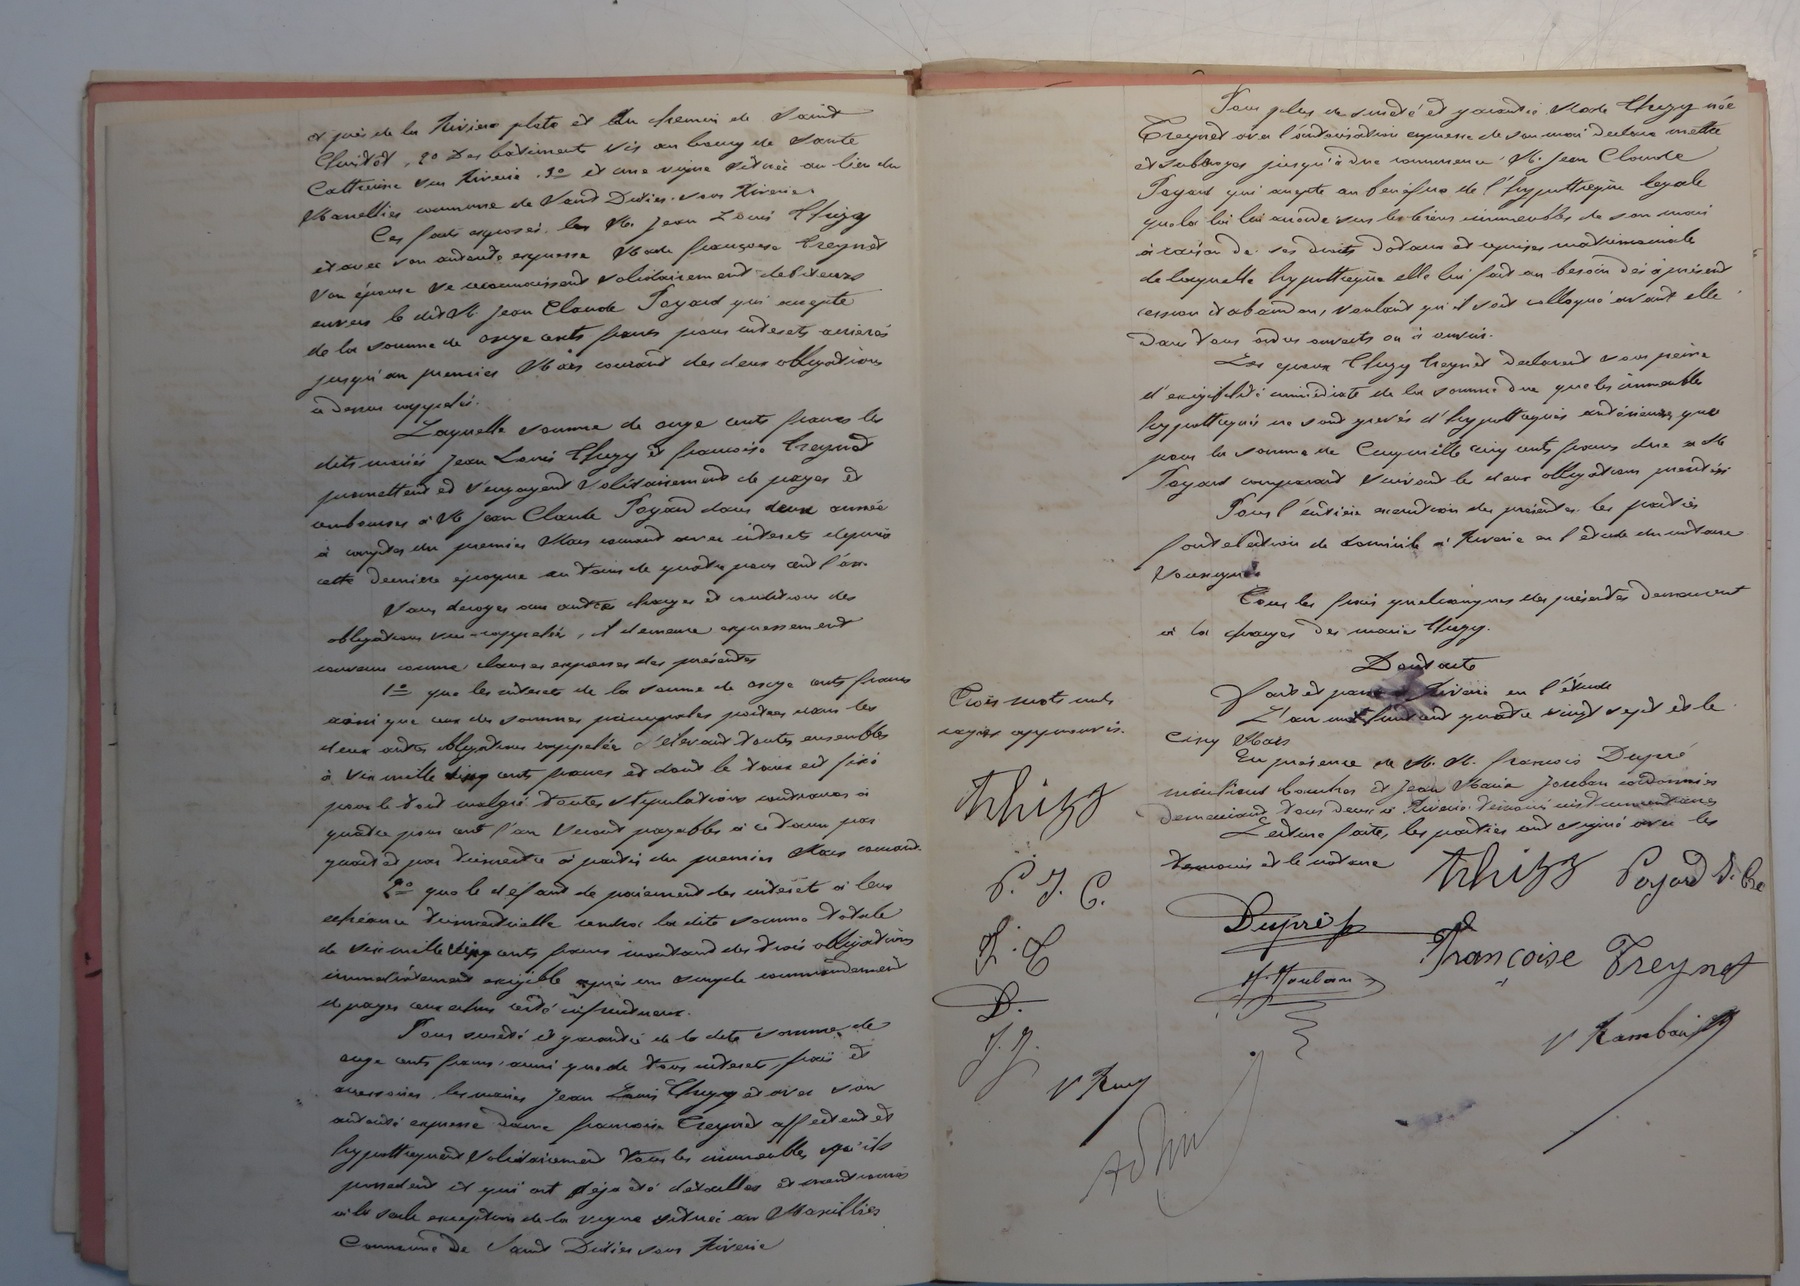 et près de la Rivière plate et du chemin de Saint
Christôt, 2o Des batiments sis au bourg de Sainte
Catherine sur Riverie. 3o et une vigne située au lieu du
Marellier commune de Saint Didier sous Riverie.
Ces faits exposés, les M. Jean Louis Thizy
et avec son autorité expresse Made françoise Treynet
son épouse se reconnaissent solidairement debiteurs
envers le dit M. Jean Claude Poyard qui accepte
de la somme de onze cents francs pour interets arrierés
jusqu'au premier Mars courant des deux obligations
ci dessus rappelés.
Laquelle somme de onze cents francs les
dits mariés Jean Louis Thizy et françoise Treynet
promettent et s'engagent solidairement de payer et
rembourser à M Jean Claude Poyard dans deux années
à compter du premier Mars courant avec interets depuis
cette dernière époque au taux de quatre pour cent l'an.
Sans deroger aux autres charges et conditions des
obligations sus-rappelées, il demeure expressement
convenu comme clauses expresses des présentes
1o que les interets de la somme de onze cents francs
ainsi que ceux des sommes principales portées dans les
deux autres obligations rappelées s'élevant toutes ensembles
à six mille cinq cents francs et dont le taux est fixé
pour le tout malgré toutes stipulations contraires à
quatre pour cent l'an seront payables à ce taux par
quart et par trimestre à partir du premier Mars courant.
2o que le défaut de paiement des intérêts à leur
echéance trimestrielle rendra la dite somme totale
de six mille cinq cents francs montant des trois obligations
immédiatement exigible après un simple commandement
de payer ceux echus resté infructueux.
Pour sureté et garantie de la dite somme de
onze cents francs, ainsi que de tous interets, frais et
accessoires, les mariés Jean Louis Thizy et avec son
autorité expresse dame françoise Treynet affectent et
hypothequent solidairement tous les immeubles qu'ils
possedent et qui ont déja été detaillés et mentionnés
à la seule exception de la vigne située au Marillier
Commune de Saint Didier sous Riverie
Pour plus de sureté et garantie Made Thizy née
Treynet avec l'autorisation expresse de son mari declare mettre
et subroger jusqu'à due concurrence M. Jean Claude
Poyard qui accepte au benéfice de l'hypothèque legale
que la loi lui accorde sur les biens immeubles de son mari
à raison de ses droits dotaux et reprises matrimoniale
de laquelle hypothèque elle lui fait au besoin dès à présent
cession et abandon, voulant qu'il soit colloqué avant elle
dans tous ordres ouverts ou à ouvrir.
Les epoux Thizy Treynet declarent sous peine
d'exigibilité immédiate de la somme due que les immeubles
hypothequés ne sont grevés d'hypothèques antérieures que
pour la somme de Cinq mille cinq cents francs due à M
Poyard comparant suivant les deux obligations precitées
Pour l'entière execution des présentes les parties
font election de domicile à Riverie en l'étude du notaire
soussigné
Tous les frais quelconques des présentes demeurent
à la charges des mariés Thizy.
Dont acte
fait et passé à Riverie en l'étude
L'an mil huit cent quatre vingt sept et le
Cinq Mars
En présence de M. M. francois Dupré
boucher et Jean Marie Jouban cordonnier
demeurant tous deux à Riverie temoins instrumentaires
Lecture faite, les parties ont signé avec les
temoins et le notaire
Thizy Poyard J. Cde
Dupré f
Françoise Treynet
J. Jouban
Trois mots nuls
rayés approuvés.
Thizy
P. J. C.
F. T
D.
J. J.